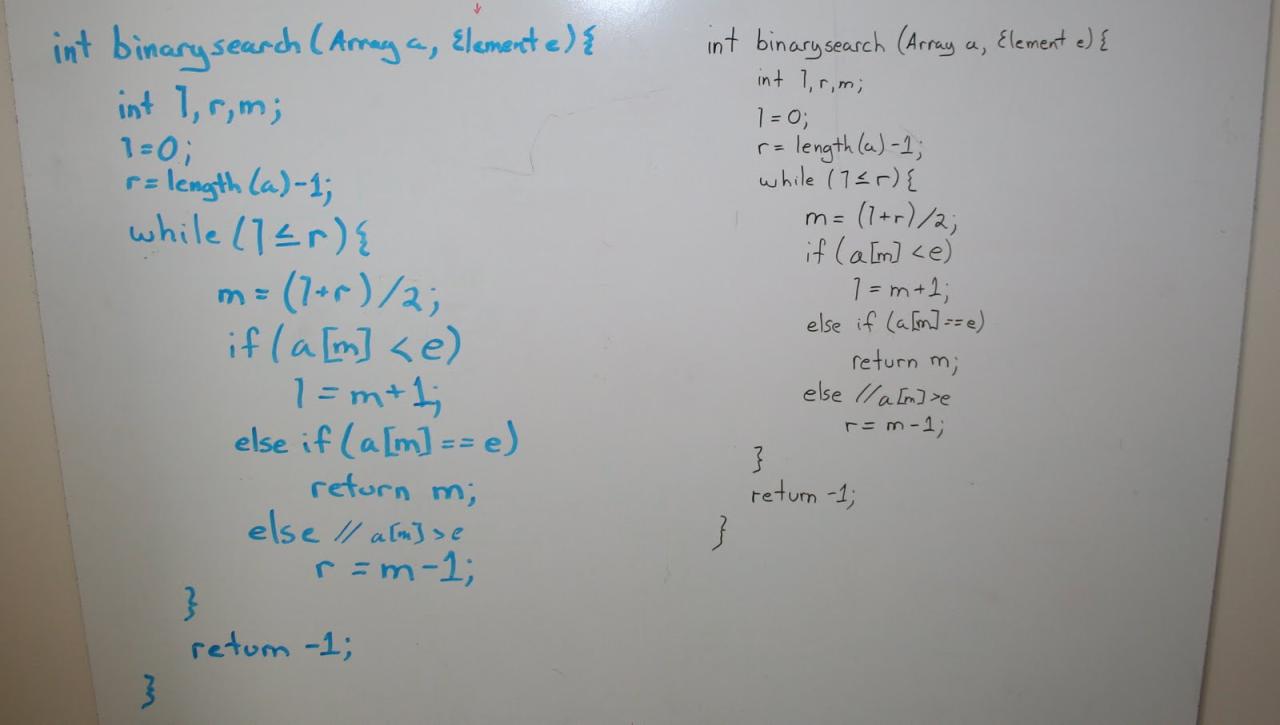 int binarysearch(Array a, Element e){
int l,r,m;
l=0;
r=length(a)-1;
while(l≤r){
m=(l+r)/2;
if(a[m] <e)
l=m+1;
else if(a[m]==e)
return m;
else //a[m]>e
r=m-1;
}
return -1;
}
int binarysearch (Array a, Element e){
int l,r,m;
l=0;
r= length(a)-1;
while (l≤r){
m= (l+r)/2;
if (a[m] <e)
l=m+1;
else if (a[m]==e)
return m;
else //a[m]>e
r= m-1;
}
return -1;
}